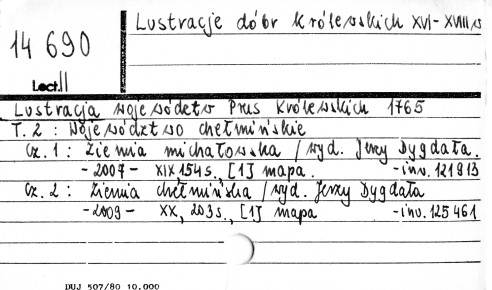 Lustracje dóbr królewskich XVI-XVIII w
14 690
Lect. II
Lustracja województw Prus Królewskich 1765
T. 2 : Województwo chełmińskie
Cz. 1 : Ziemia michałowska / wyd. Jerzy Dygdała.
- 2007 - XIX, 154 s., [1] mapa. - inw. 121913
Cz. 2 : Ziemia chełmińska / wyd. Jerzy Dygdała
- 2009 - XX, 203 s., [1] mapa - inw. 125461
DUJ 507/80 10.000